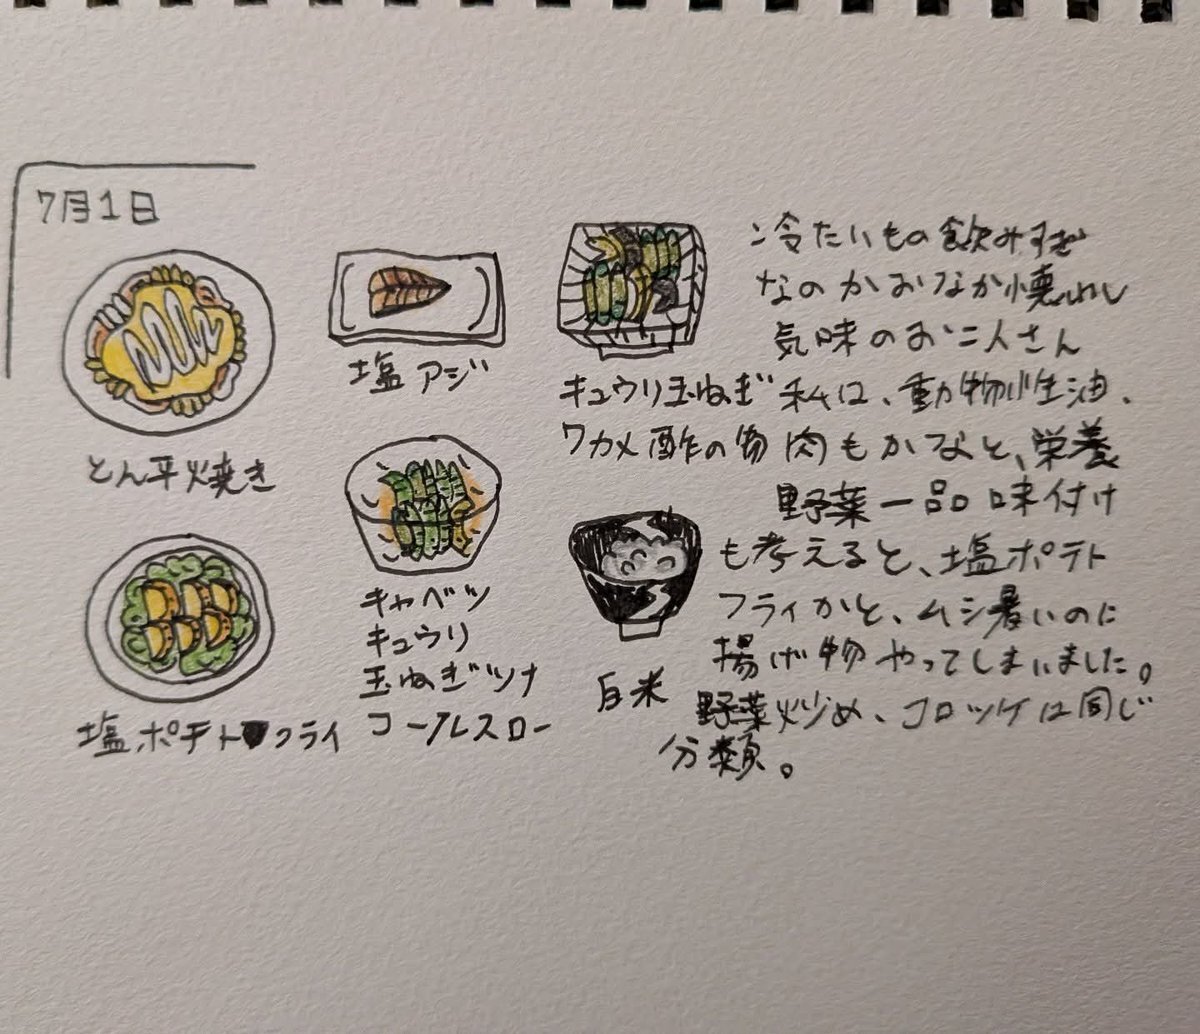 7月1日
とん平焼き
塩アジ
キュウリ玉ねぎ
ワカメ酢の物
塩ポテトフライ
キャベツ
キュウリ
玉ねぎツナ
コールスロー
白米
冷たいもの飲みすぎ
なのかおなか懐わし
気味のお二人さん
私は、動物性油、
肉もかなと、栄養
野菜一品味付け
も考えると、塩ポテト
フライかと、ムシ暑いのに
揚げ物やってしまいました。
野菜炒め、コロッケは同じ
分類。